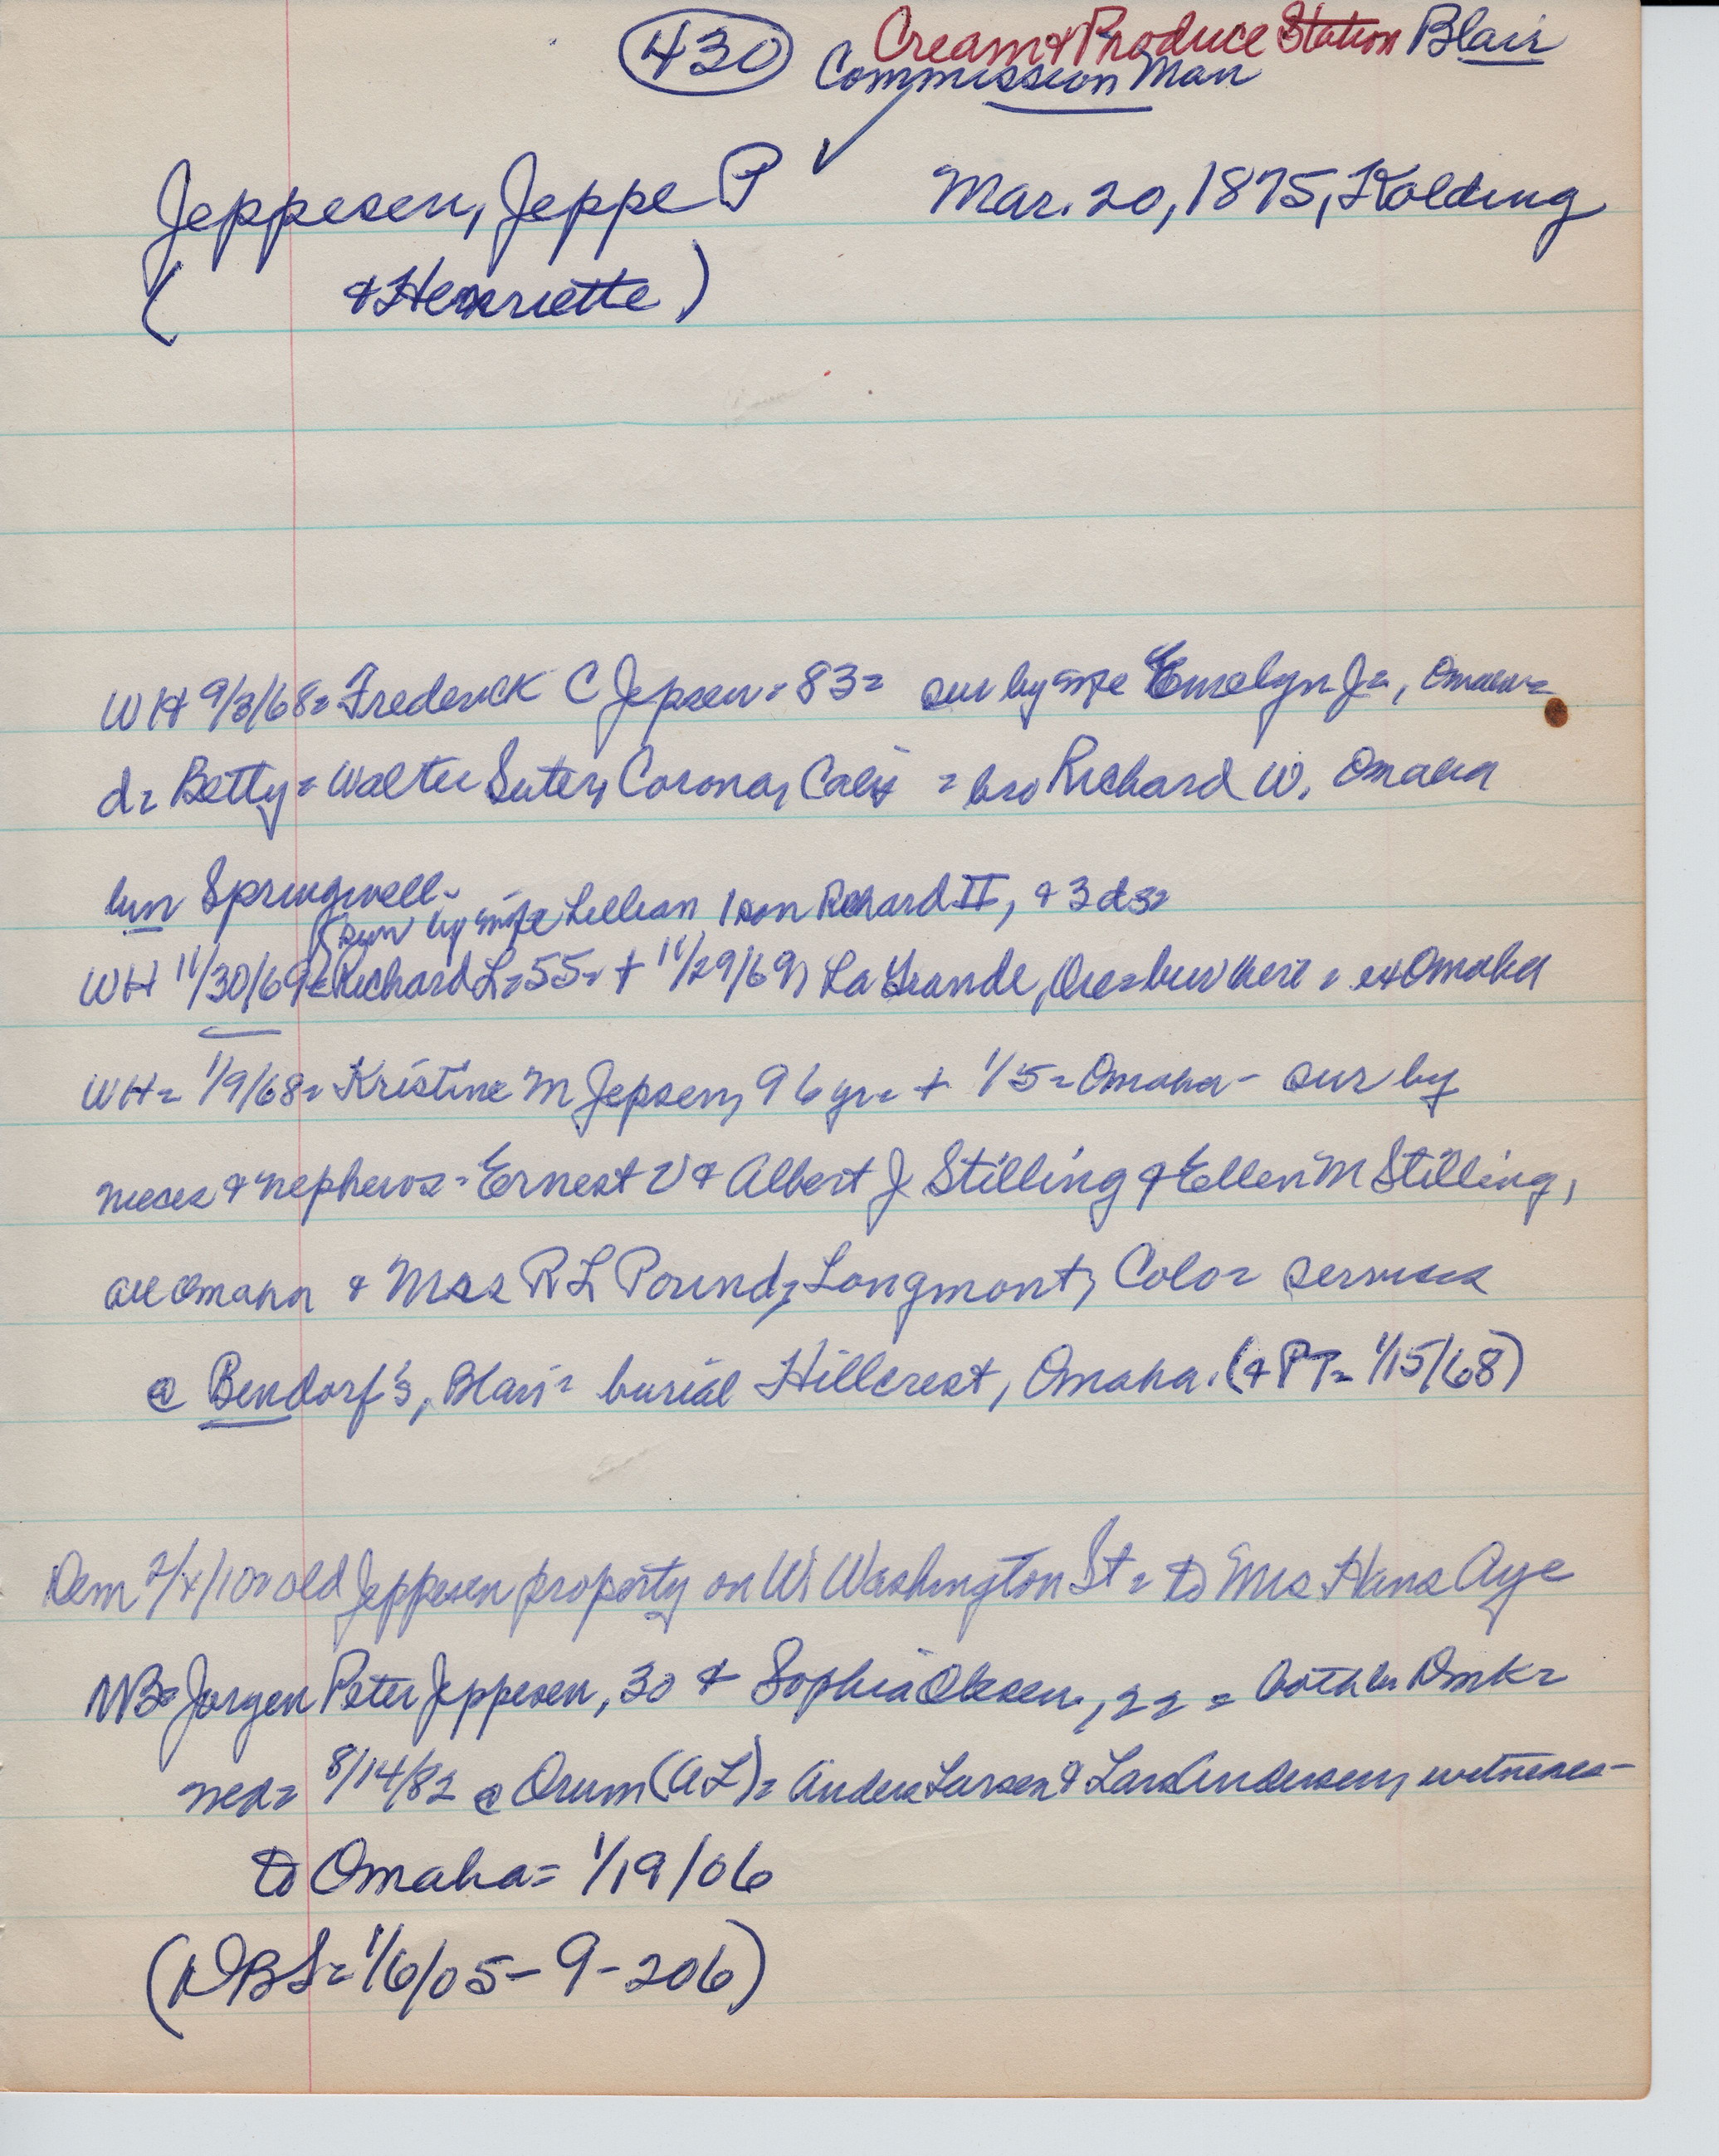 430 Cream & Produce Station Blair
Commission Man
Jeppesen, Jeppe P Mar. 20, 1875, Kolding
( & Henriette )
WH 9/3/68= Frederick C Jepsen = 83= sur by wife Emelyn J=, Omaha=
d= Betty = Walter Suter, Corona, Calif = bro Richard W, Omaha
bur Springwell-
sur by wife Lillian, 1 son Richard II, & 3 ds=
WH 11/30/69= Richard L=55= + 11/29/69, La Grande, Ore=bur here = ex Omaha
WH= 1/9/68= Kristine M Jepsen, 96 yr= + 1/5= Omaha - sur by
nieces & nephews - Ernest V & Albert J Stilling & Ellen M Stilling,
all Omaha & Mrs R L Pound, Longmont, Colo= services
@ Bendorf's, Blair= burial Hillcrest, Omaha. (& PT= 1/15/68)
Dem 2/4/10= old Jeppesen property on W. Washington St = to Mrs Hans Aye
NB= Jorgen Peter Jeppesen, 30 & Sophia Olesen, 22 = both bn Dmk=
med= 8/14/82 @ Orum (AL)= Anders Larsen & Lars Andersen, witnesses-
to Omaha= 1/19/06
(DBS= 1/6/05-9-206)